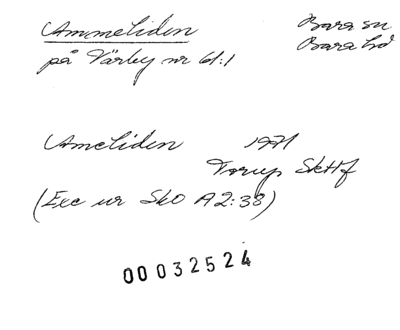 Ammeliden
Bara sn
Bara hd
på Värby nr 61:1
Ameliden 1971
Torup SkHf
(Exc ur SkO A2:38)
00032524